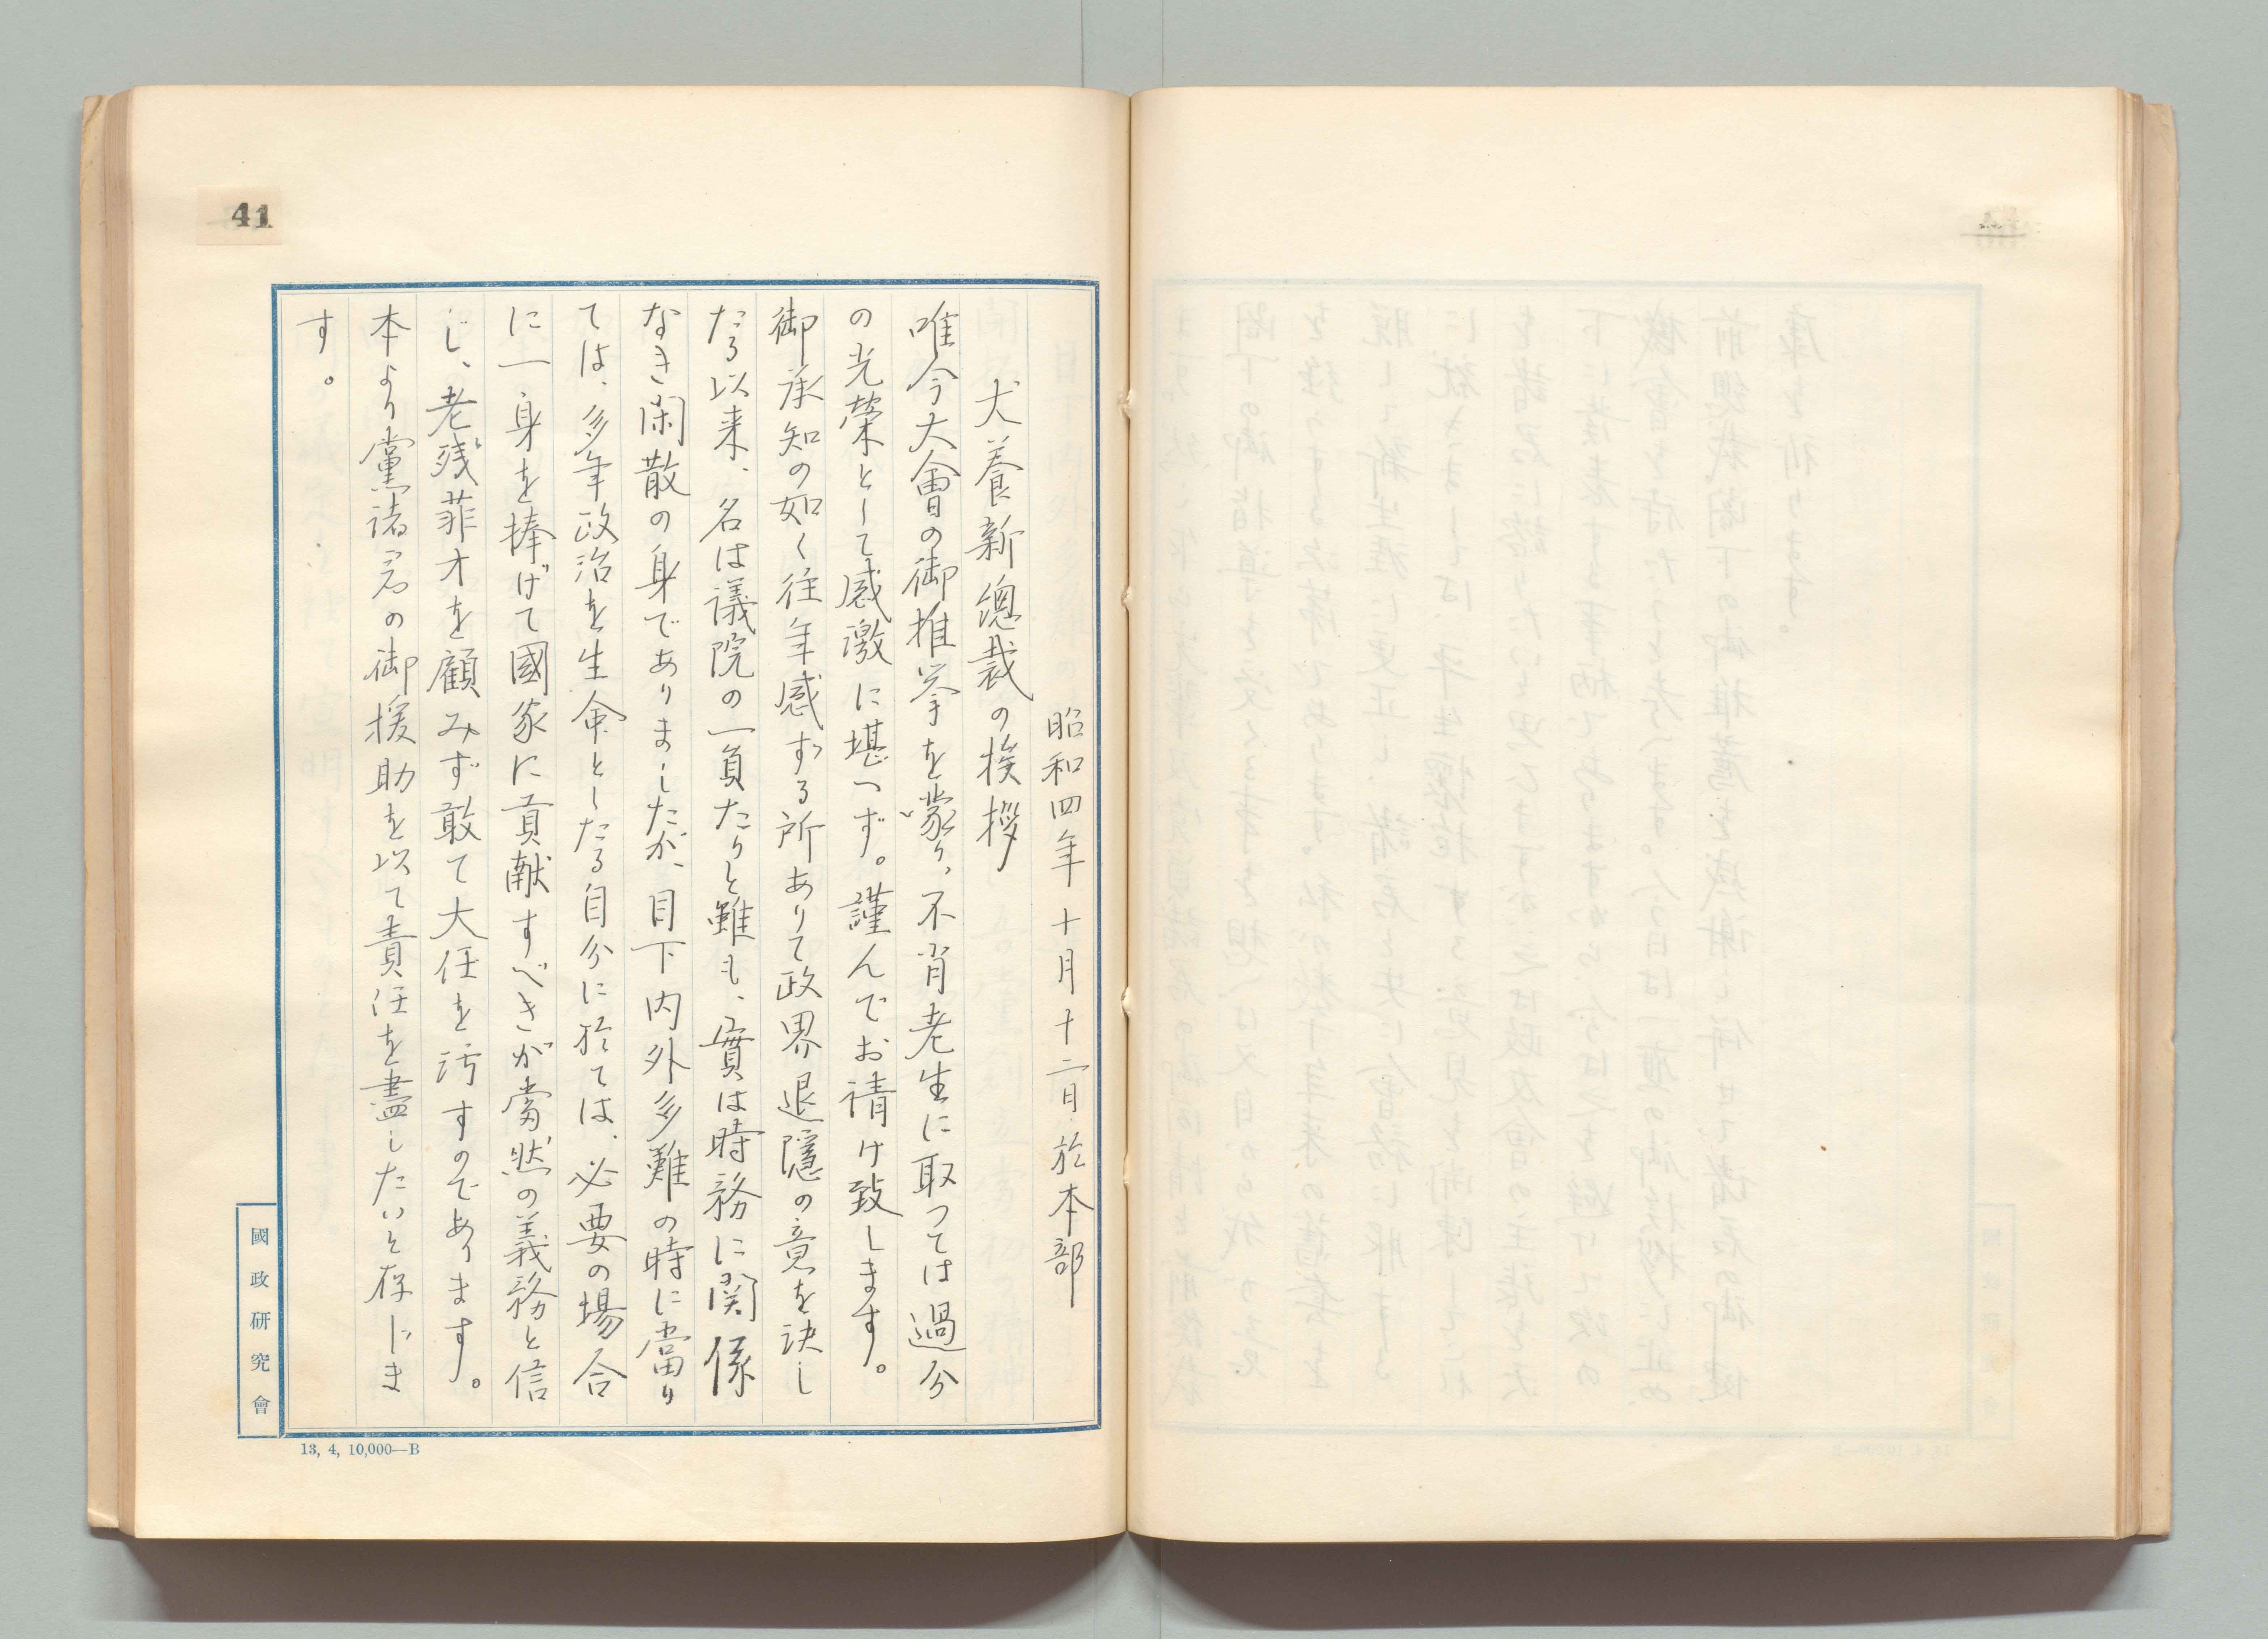 41
昭和四年十月十二日於本部
犬養新總裁の挨拶
唯今大會の御推挙を蒙り、不肖老生に取つては過分
の光榮として感激に堪へず。謹んでお請け致します。
御承知の如く往年感ずる所ありて政界退隱の意を決し
たる以来、名は議院の一員たりと雖も、實は時務に関係
なき閑散の身でありましたが、目下内外多難の時に當り
ては、多年政治を生命としたる自分に於ては、必要の場合
に一身を捧げて國家に貢献すべきが當然の義務と信
じ、老残菲才を顧みず敢て大任を汚すのであります。
本より黨諸君の御援助を以て責任を盡したいと存じま
す。
國政研究會
13, 4, 10,000—B